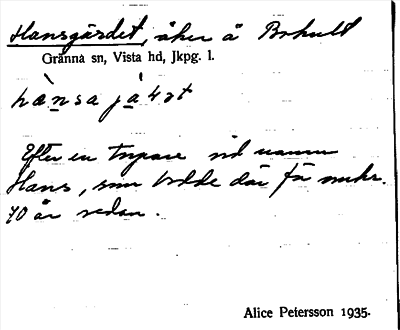 Hansgärdet, åker å Bohult
Gränna sn, Vista hd, Jkpg. l.
Efter en torpare vid namn
Hans, som bodde där för
70 år sedan.
Alice Petersson 1935.